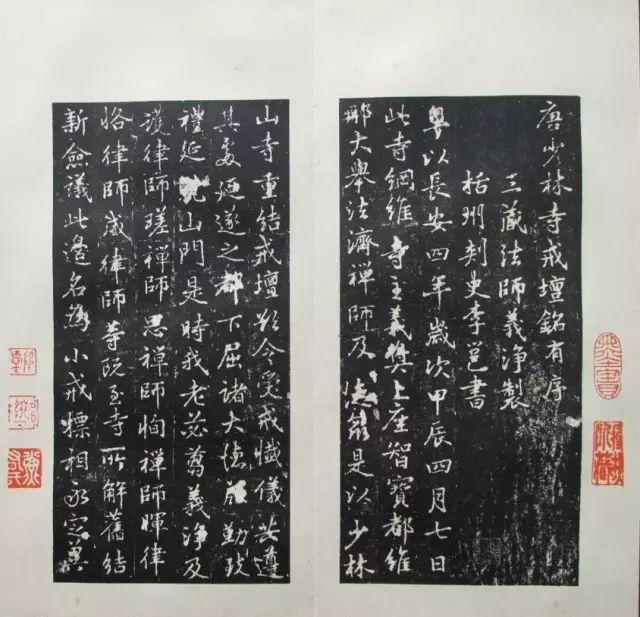 唐少林寺戒壇銘有序
三藏法師義淨製
括州刺史李邕書
粵以長安四年歲次甲辰四月七日
此寺綱維寺主義奘上座智寶都維
那大舉法濟禪師及是以少林
山寺重結戒壇欲令受戒懺儀共遵
其處遂之都下屈諸大德勤致
禮延山門是時我老苾蒭義淨及
護律師瑳禪師思禪師恂禪師暉律
恪律師威律師等既至寺所解舊結
新僉議此邊名為小戒標相永定冀